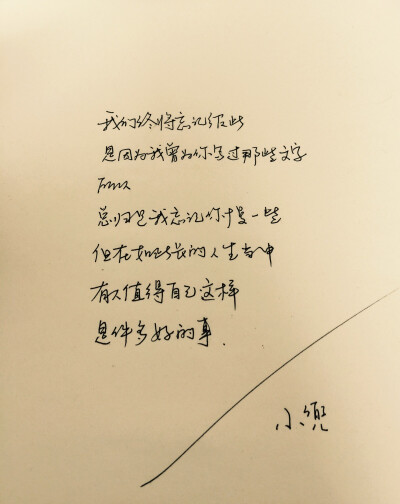 我们终将忘记彼此
是因为我曾为你写过那些文字
所以
总归是我忘记你慢一些
但在如此长的人生当中
有人值得自己这样
是件多好的事.
小兜